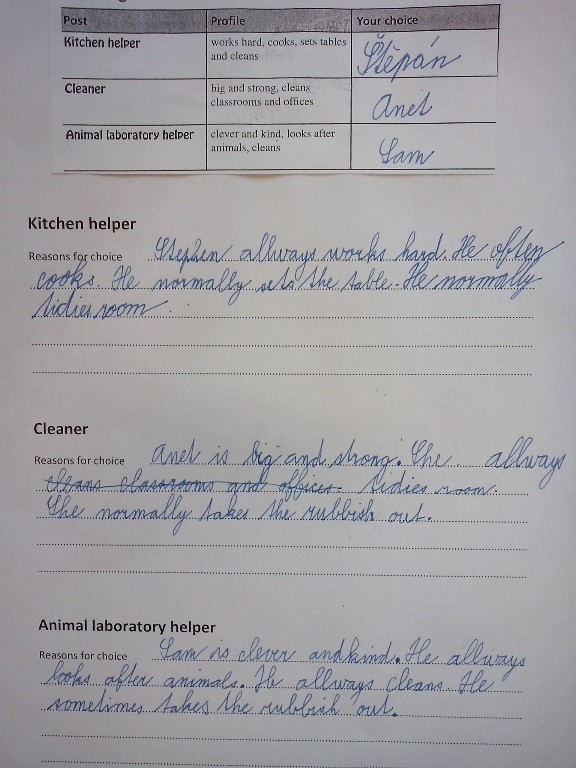 Post Profile Your choice
Kitchen helper works hard, cooks, sets tables Štěpán
and cleans
Cleaner big and strong, cleans Anet
classrooms and offices
Animal laboratory helper clever and kind, looks after Sam
animals, cleans
Kitchen helper
Reasons for choice Stephen allways works hard. He often
cooks. He normally sets the table. He normally
tidies room.
Cleaner
Reasons for choice Anet is big and strong. She allways
cleans classrooms and offices. tidies room.
She normally takes the rubbish out.
Animal laboratory helper
Reasons for choice Sam is clever and kind. He allways
looks after animals. He allways cleans. He
sometimes takes the rubbish out.